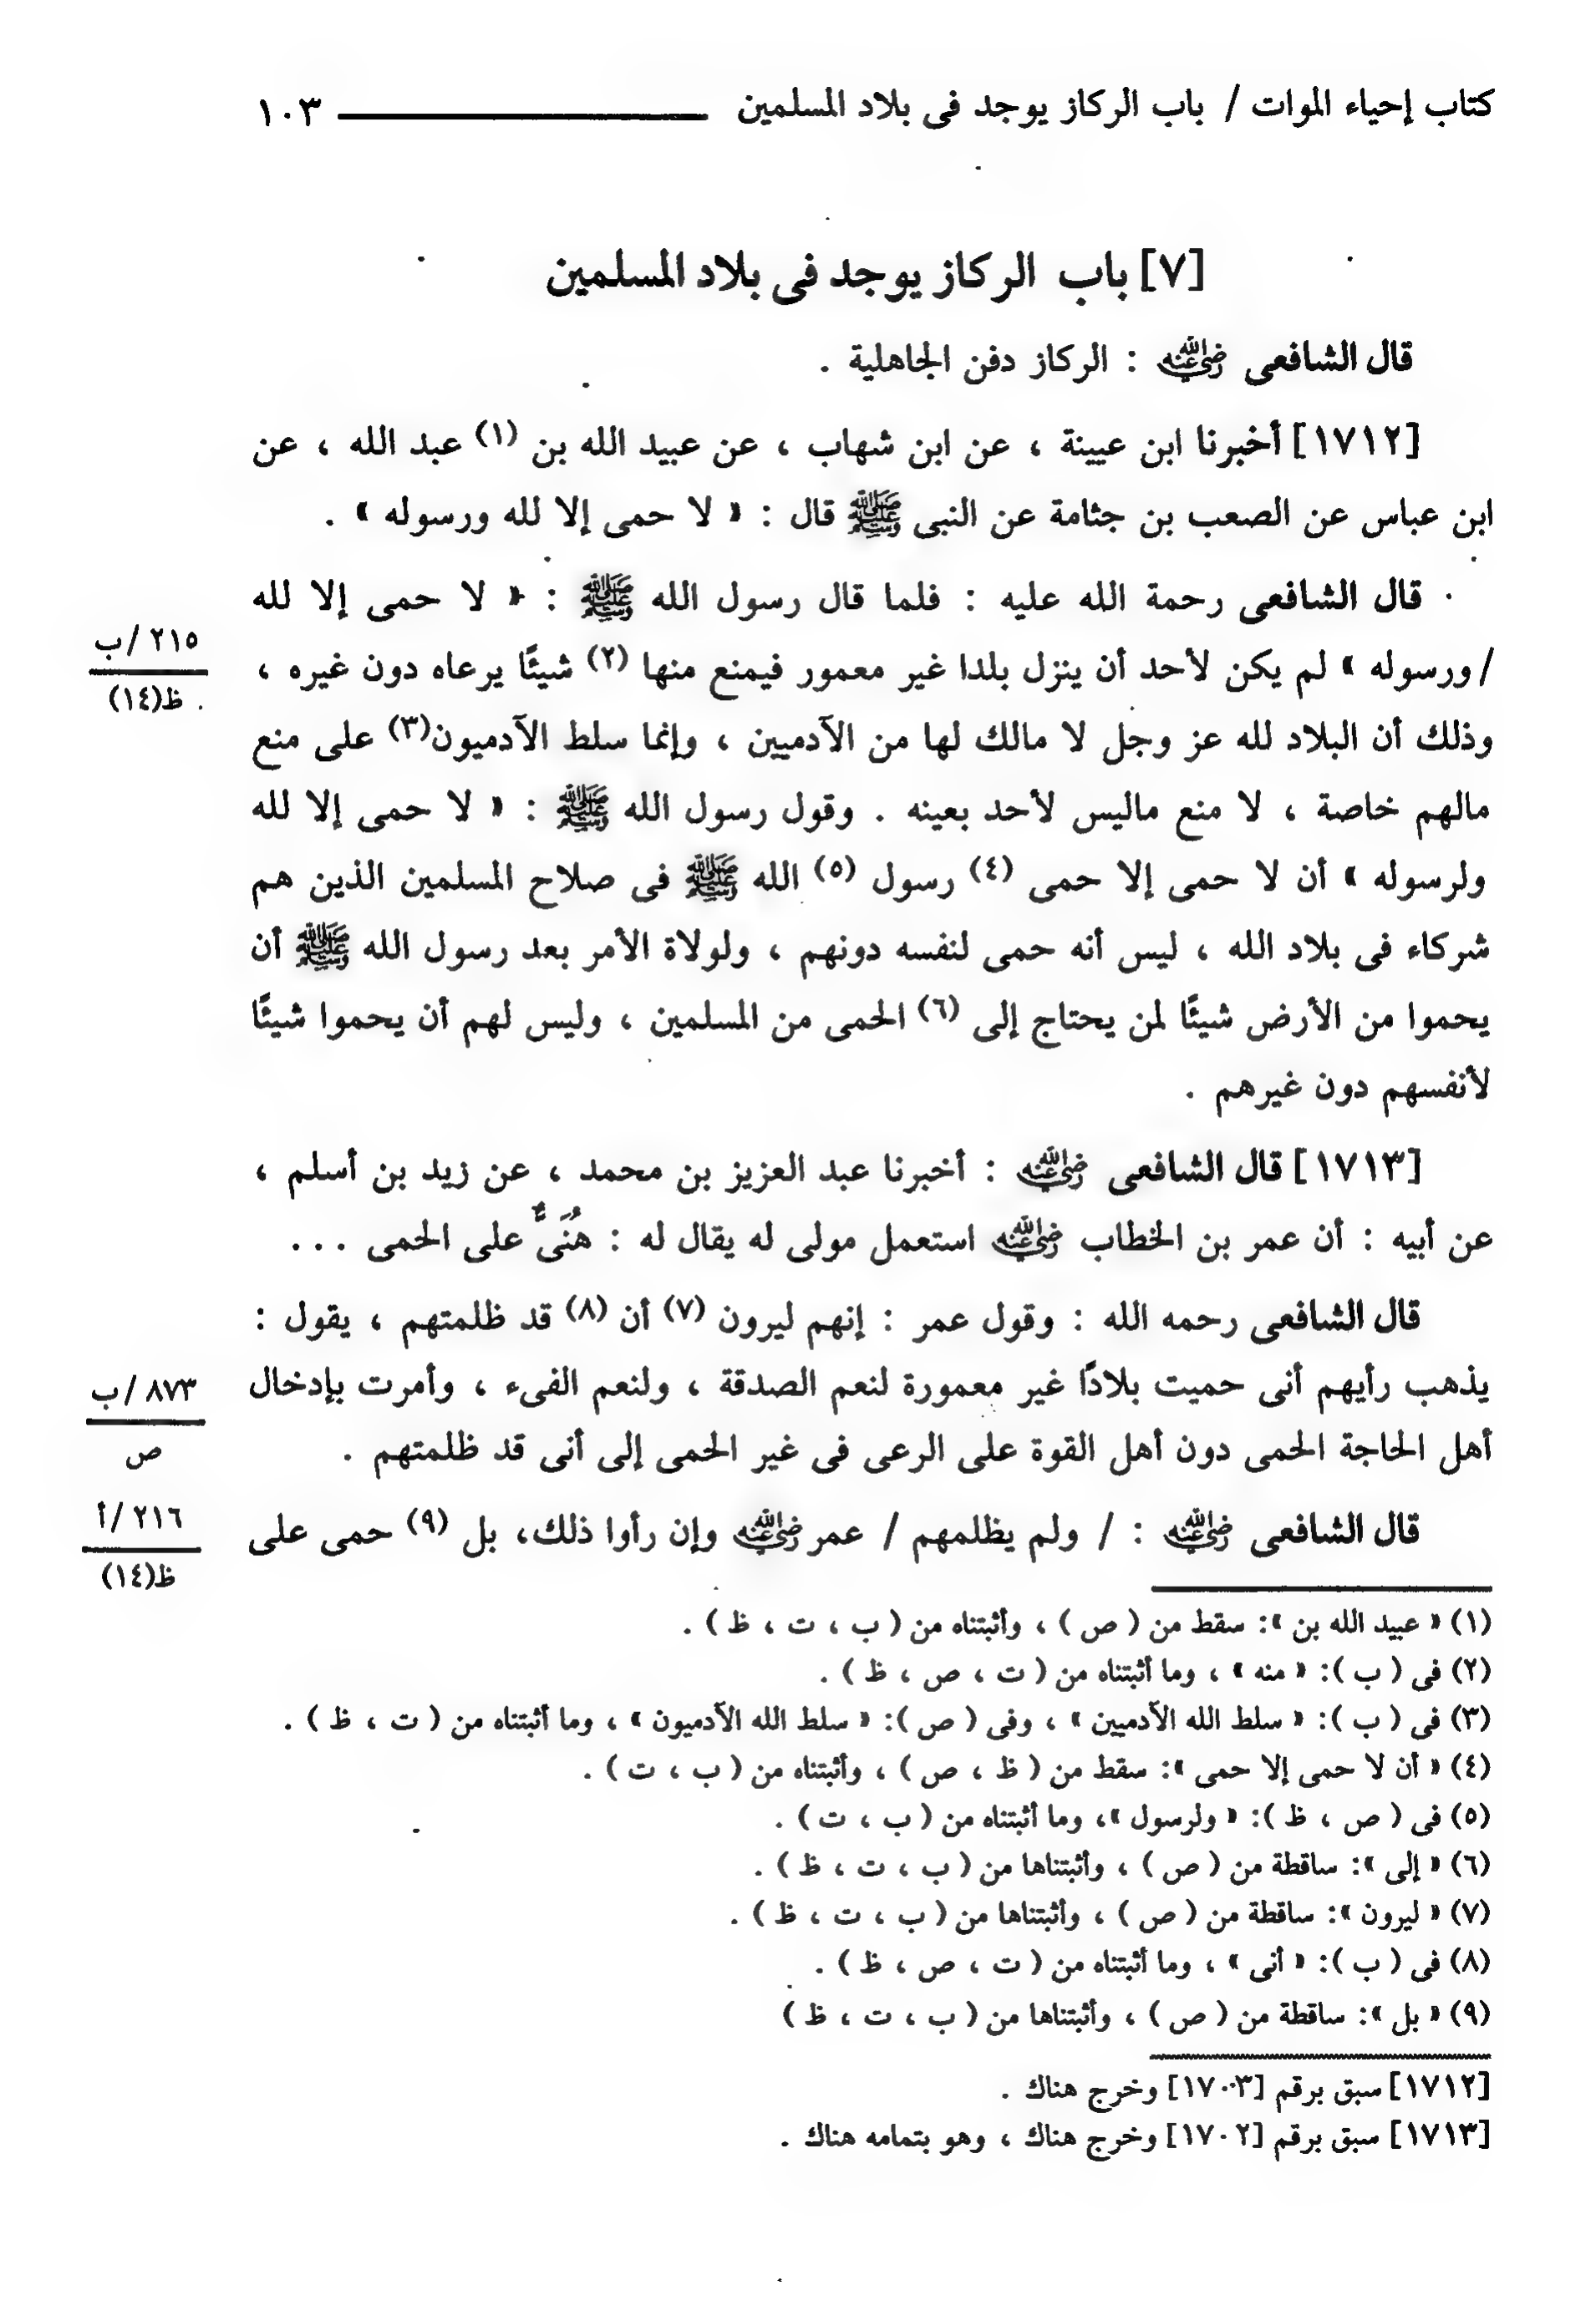 كتاب إحياء الموات / باب الركاز يوجد فى بلاد المسلمين ١٠٣
[٧] باب الركاز يوجد فى بلاد المسلمين
قال الشافعى رضي الله عنه : الركاز دفن الجاهلية .
[١٧١٢] أخبرنا ابن عيينة ، عن ابن شهاب ، عن عبيد الله بن (١) عبد الله ، عن
ابن عباس عن الصعب بن جثامة عن النبى ﷺ قال : « لا حمى إلا لله ورسوله » .
قال الشافعى رحمة الله عليه : فلما قال رسول الله ﷺ : « لا حمى إلا لله
/ ورسوله » لم يكن لأحد أن ينزل بلدا غير معمور فيمنع منها (٢) شيئًا يرعاه دون غيره ،
٢١٥ /ب
ظ(١٤)
وذلك أن البلاد لله عز وجل لا مالك لها من الآدميين ، وإنما سلط الآدميون(٣) على منع
مالهم خاصة ، لا منع ماليس لأحد بعينه . وقول رسول الله ﷺ : « لا حمى إلا لله
ولرسوله » أن لا حمى إلا حمى (٤) رسول (٥) الله ﷺ فى صلاح المسلمين الذين هم
شركاء فى بلاد الله ، ليس أنه حمى لنفسه دونهم ، ولولاة الأمر بعد رسول الله ﷺ أن
يحموا من الأرض شيئًا لمن يحتاج إلى (٦) الحمى من المسلمين ، وليس لهم أن يحموا شيئًا
لأنفسهم دون غيرهم .
[١٧١٣] قال الشافعى رضي الله عنه : أخبرنا عبد العزيز بن محمد ، عن زيد بن أسلم ،
عن أبيه : أن عمر بن الخطاب رضي الله عنه استعمل مولى له يقال له : هُنَىٌّ على الحمى ...
قال الشافعى رحمه الله : وقول عمر : إنهم ليرون (٧) أن (٨) قد ظلمتهم ، يقول :
يذهب رأيهم أنى حميت بلادًا غير معمورة لنعم الصدقة ، ولنعم الفىء ، وأمرت بإدخال
٨٧٣ /ب
ص
أهل الحاجة الحمى دون أهل القوة على الرعى فى غير الحمى إلى أنى قد ظلمتهم .
قال الشافعى رضي الله عنه : / ولم يظلمهم / عمر رضي الله عنه وإن رأوا ذلك، بل (٩) حمى على
٢١٦ /أ
ظ(١٤)
(١) « عبيد الله بن »: سقط من ( ص ) ، وأثبتناه من ( ب ، ت ، ظ ) .
(٢) فى ( ب ): « منه » ، وما أثبتناه من ( ت ، ص ، ظ ) .
(٣) فى ( ب ): « سلط الله الآدميين » ، وفى ( ص ): « سلط الله الآدميون » ، وما أثبتناه من ( ت ، ظ ) .
(٤) « أن لا حمى إلا حمى »: سقط من ( ظ ، ص ) ، وأثبتناه من ( ب ، ت ) .
(٥) فى ( ص ، ظ ): « ولرسول »، وما أثبتناه من ( ب ، ت ) .
(٦) « إلى »: ساقطة من ( ص ) ، وأثبتناها من ( ب ، ت ، ظ ) .
(٧) « ليرون »: ساقطة من ( ص ) ، وأثبتناها من ( ب ، ت ، ظ ) .
(٨) فى ( ب ): « أنى » ، وما أثبتناه من ( ت ، ص ، ظ ) .
(٩) « بل »: ساقطة من ( ص ) ، وأثبتناها من ( ب ، ت ، ظ )
[١٧١٢] سبق برقم [١٧٠٣] وخرج هناك .
[١٧١٣] سبق برقم [١٧٠٢] وخرج هناك ، وهو بتمامه هناك .